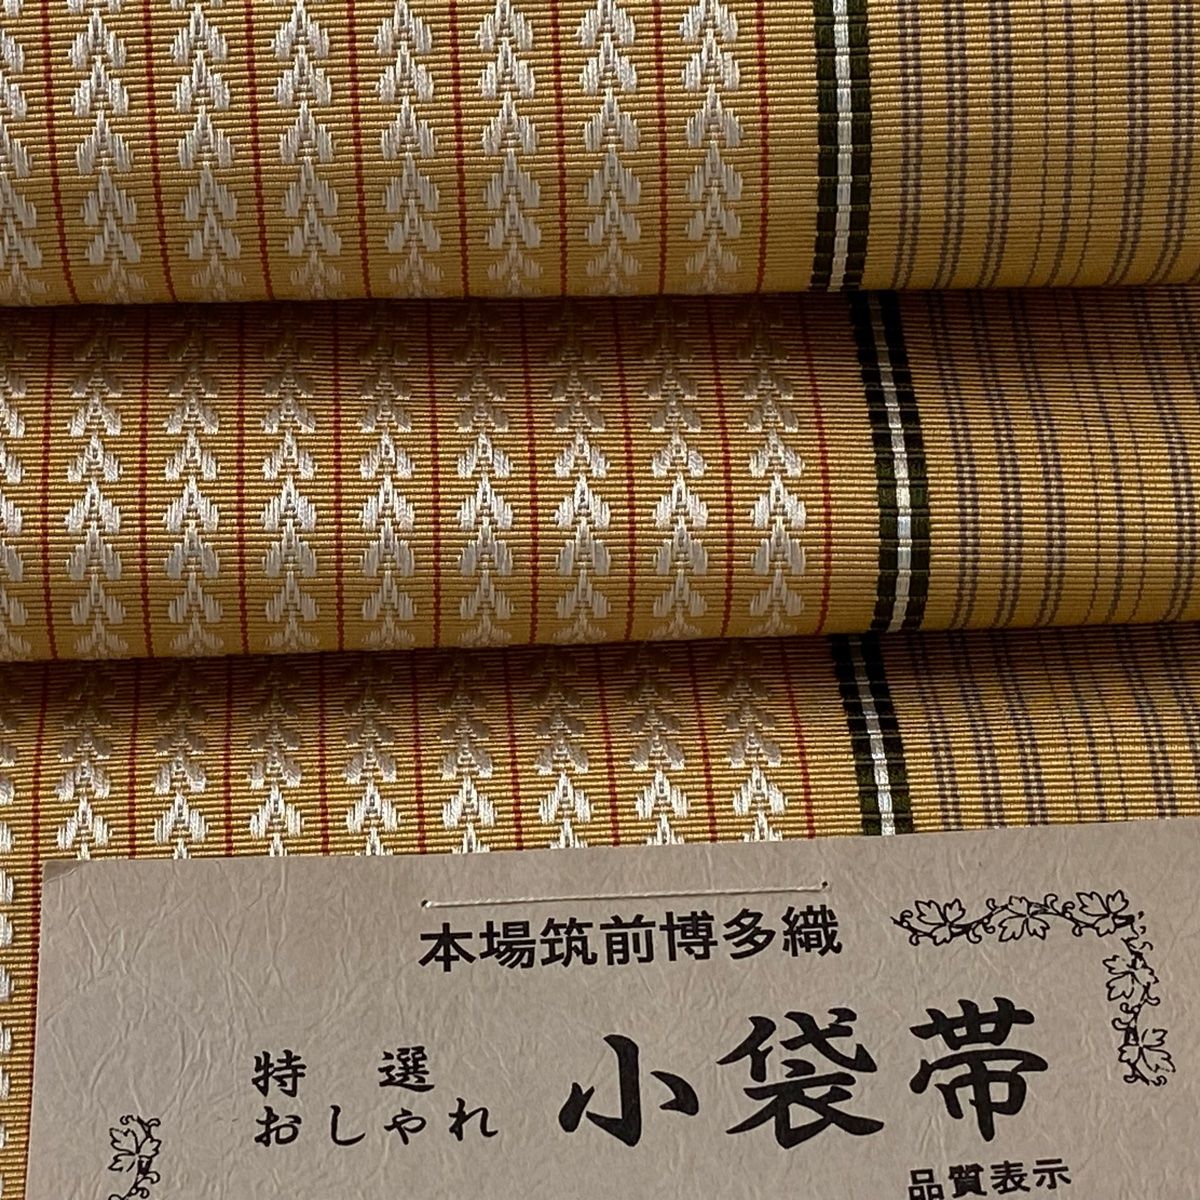 本場筑前博多織
特選
おしゃれ
小袋帯
品質表示